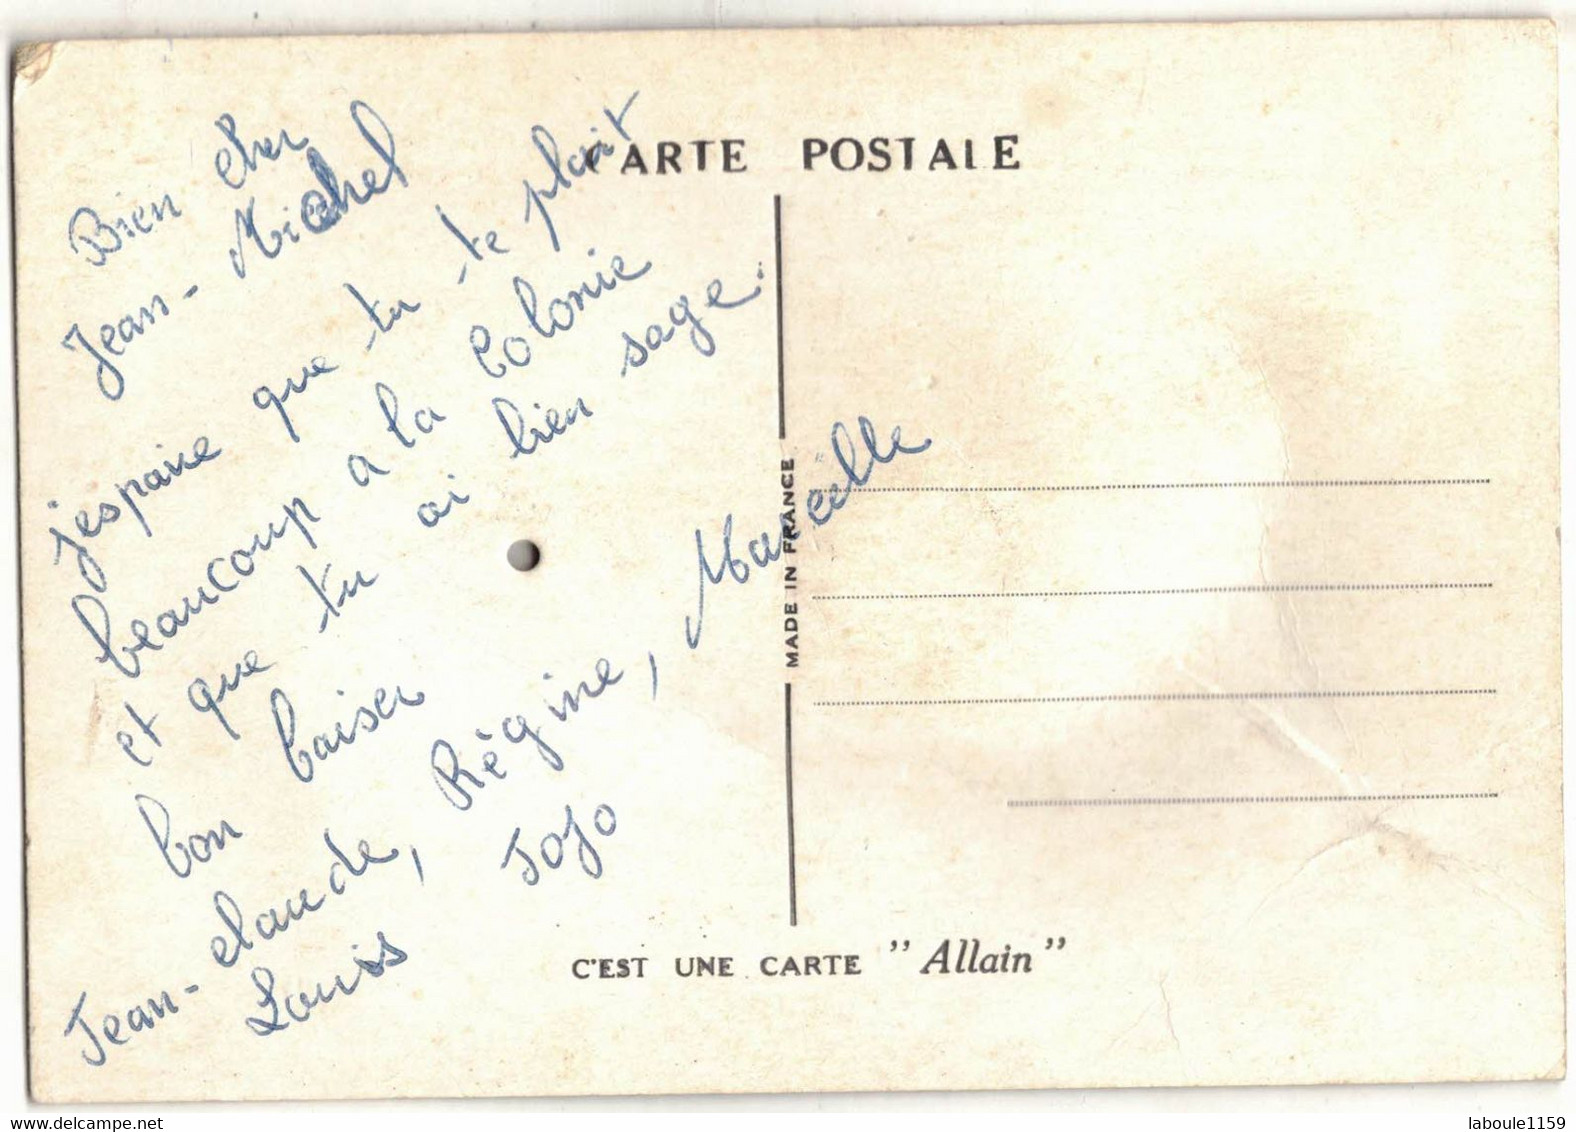 Bien cher
Jean-Michel
j'espaire que tu te plait
beaucoup a la Colonie
et que tu ai bien sage.
bon baiser
Jean-claude, Régine, Marcelle
Louis Jojo
CARTE POSTALE
MADE IN FRANCE
C'EST UNE CARTE "Allain"
laboule1159